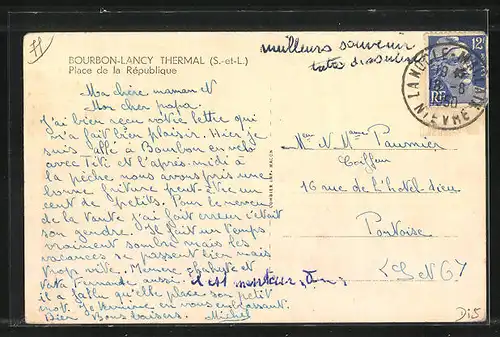 BOURBON-LANCY THERMAL (S.-et-L.)
Place de la République
meilleurs souvenir
12F
RF
NIÈVRE
Ma chère maman et
Mon cher papa.
J'ai bien reçu votre lettre qui
m'a fait bien plaisir. Hier je
suis allé à Bourbon en vélo
avec Titi et l'après-midi à
la pêche nous avons pris une
bonne friture peut-être un
cent de petits. Pour le neveu
de la tante j'ai fait erreur c'était
son gendre. Il fait un temps
vraiment sombre mais les
vacances se passent bien mais
trop vite. Mémère
tata Fernande aussi. c'est menteur
il a fallu qu'elle place son petit
mot. Je termine en vous embrassant.
Bien Bons baisers. Michel
COMBIER IMP. MACON
Mieur et Mme Paumier
Coiffeur
16 rue de l'Hotel-dieu
Pontoise
S et O
DiS